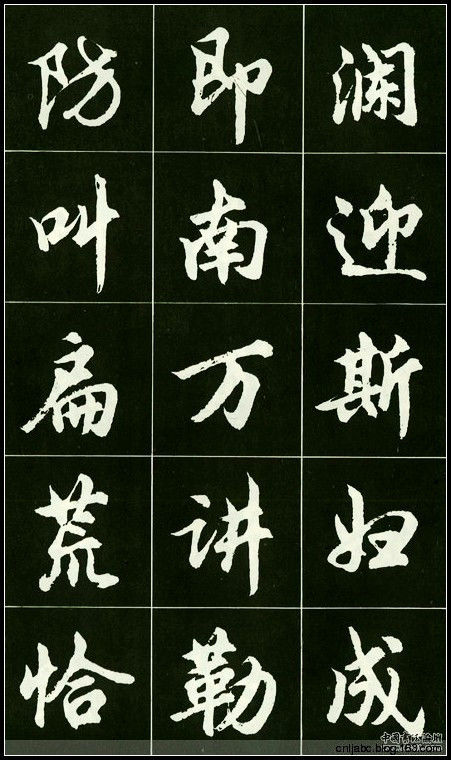 澜迎斯妇成
即南万讲勒
防叫扁荒恰
中國書法論壇
cnljabc.blog.163.com